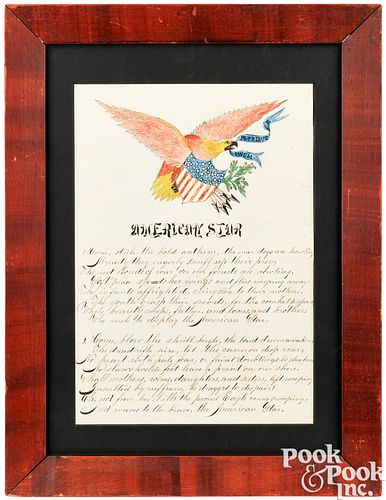 E
PLURIBUS
UNUM
AMERICAN STAR
1 Come, strike the bold anthem, the war dogs are howling
Already they eagerly snuff up their prey,
The red cloud of war o'er our forests is scowling,
Soft peace spreads her wings and flies weeping away
The infants affrighted cling close to their mothers
The youths grasp their swords, for the combat prepare
While beauty weeps, fathers, and lovers, and brothers
Who rush to display the American Star.
2 Come, blow the shrill bugle, the loud drum awaken,
The dread rifle seize, let the cannon deep roar;
No heart with pale fear, or faint doubtings be shaken,
No slave's hostile foot leave a print on our shore
Shall mothers, wives, daughters, and sisters, left weeping
Insulted by ruffians, be dragged to despair!
Oh, no! from her hills the proud Eagle comes sweeping,
And waves to the brave, the American Star.
POOK
& POOK
Inc.